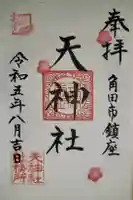 奉拝
角田市鎮座
天神社
令和五年八月吉日